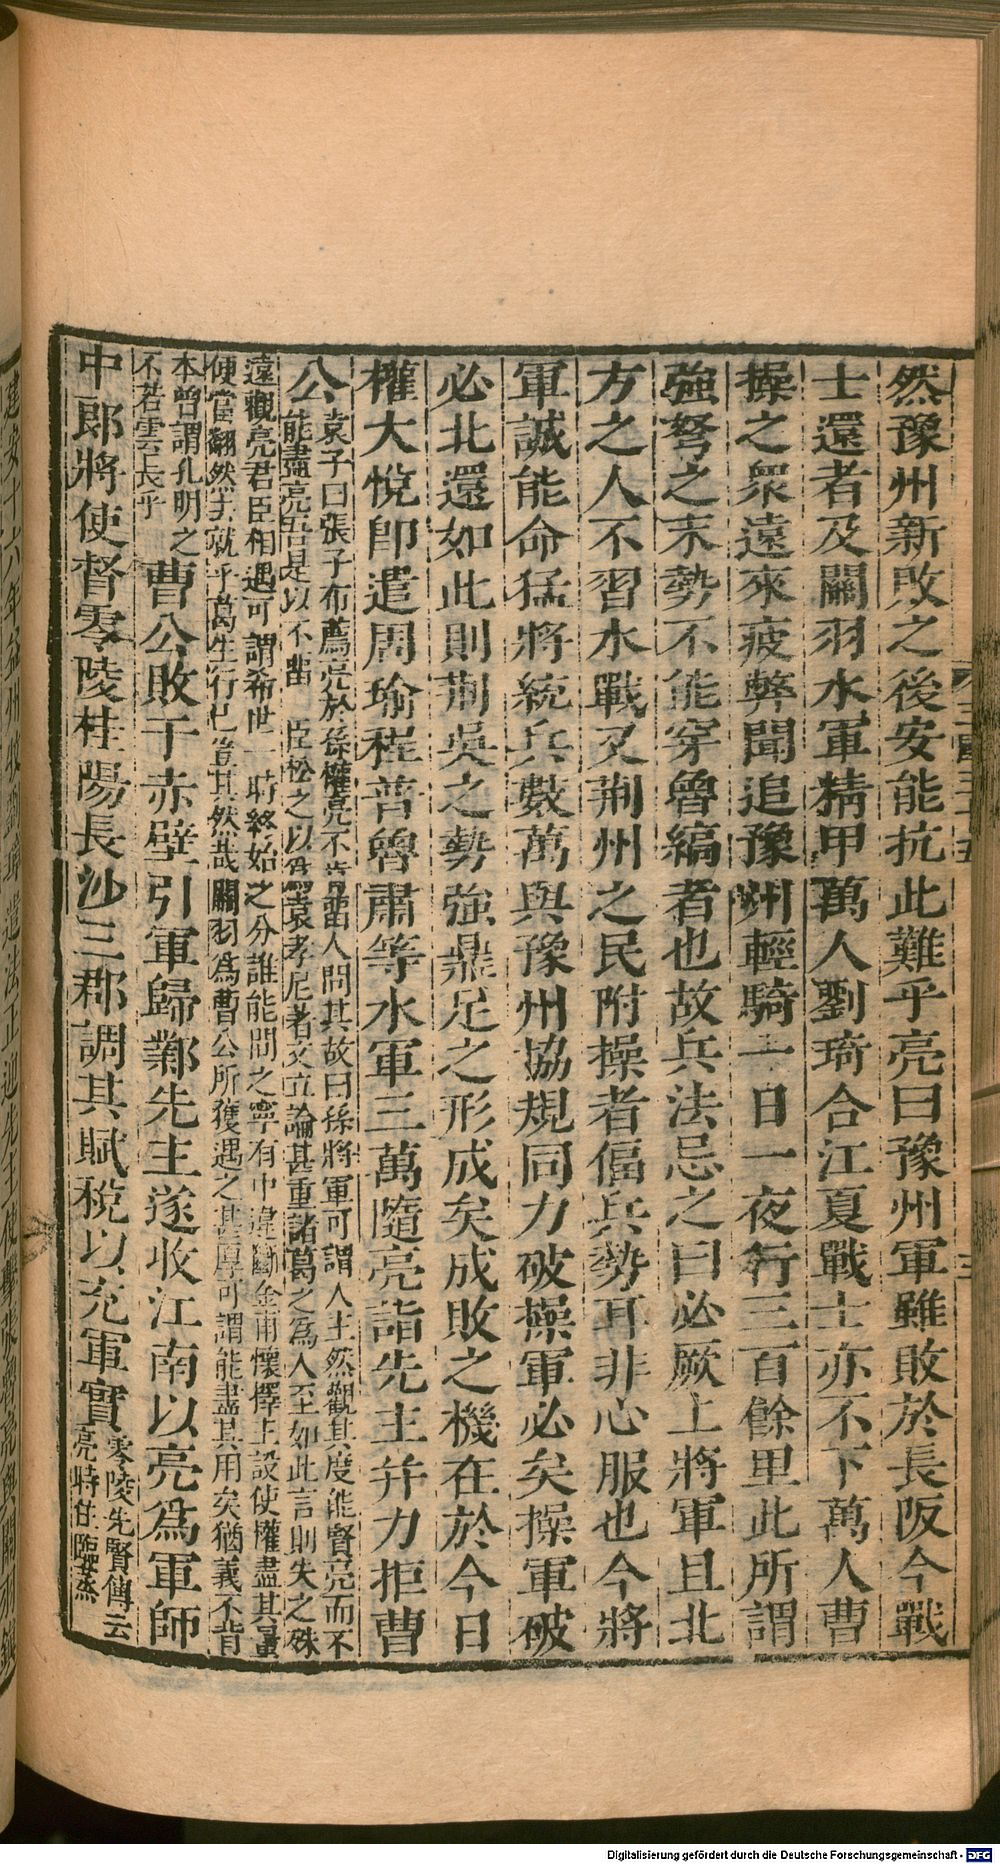 然豫州新敗之後安能抗此難乎亮曰豫州軍雖敗於長阪今戰
士還者及關羽水軍精甲萬人劉琦合江夏戰士亦不下萬人曹
操之衆遠來疲弊聞追豫州輕騎一日一夜行三百餘里此所謂
強弩之末勢不能穿魯縞者也故兵法忌之曰必蹶上將軍且北
方之人不習水戰又荆州之民附操者偪兵勢耳非心服也今將
軍誠能命猛將統兵數萬與豫州協規同力破操軍必矣操軍破
必北還如此則荆吳之勢強鼎足之形成矣成敗之機在於今日
權大悅卽遣周瑜程普魯肅等水軍三萬隨亮詣先主并力拒曹
公袁子曰張子布薦亮於孫權亮不肯畱人問其故曰孫將軍可謂人主然觀其度能賢亮而不
能盡亮吾是以不畱 臣松之以爲袁孝尼著文立論甚重諸葛之爲人至如此言則失之殊
遠觀亮君臣相遇可謂希世一時終始之分誰能間之寧有中違斷金甫懷擇主設使權盡其量
便當翻然去就乎葛生行己豈其然哉關羽爲曹公所獲遇之甚厚可謂能盡其用矣猶義不背
本曾謂孔明之
不若雲長乎
曹公敗于赤壁引軍歸鄴先主遂收江南以亮爲軍師
中郎將使督零陵桂陽長沙三郡調其賦稅以充軍實
零陵先賢傳云
亮時住臨烝
Digitalisierung gefördert durch die Deutsche Forschungsgemeinschaft - DFG